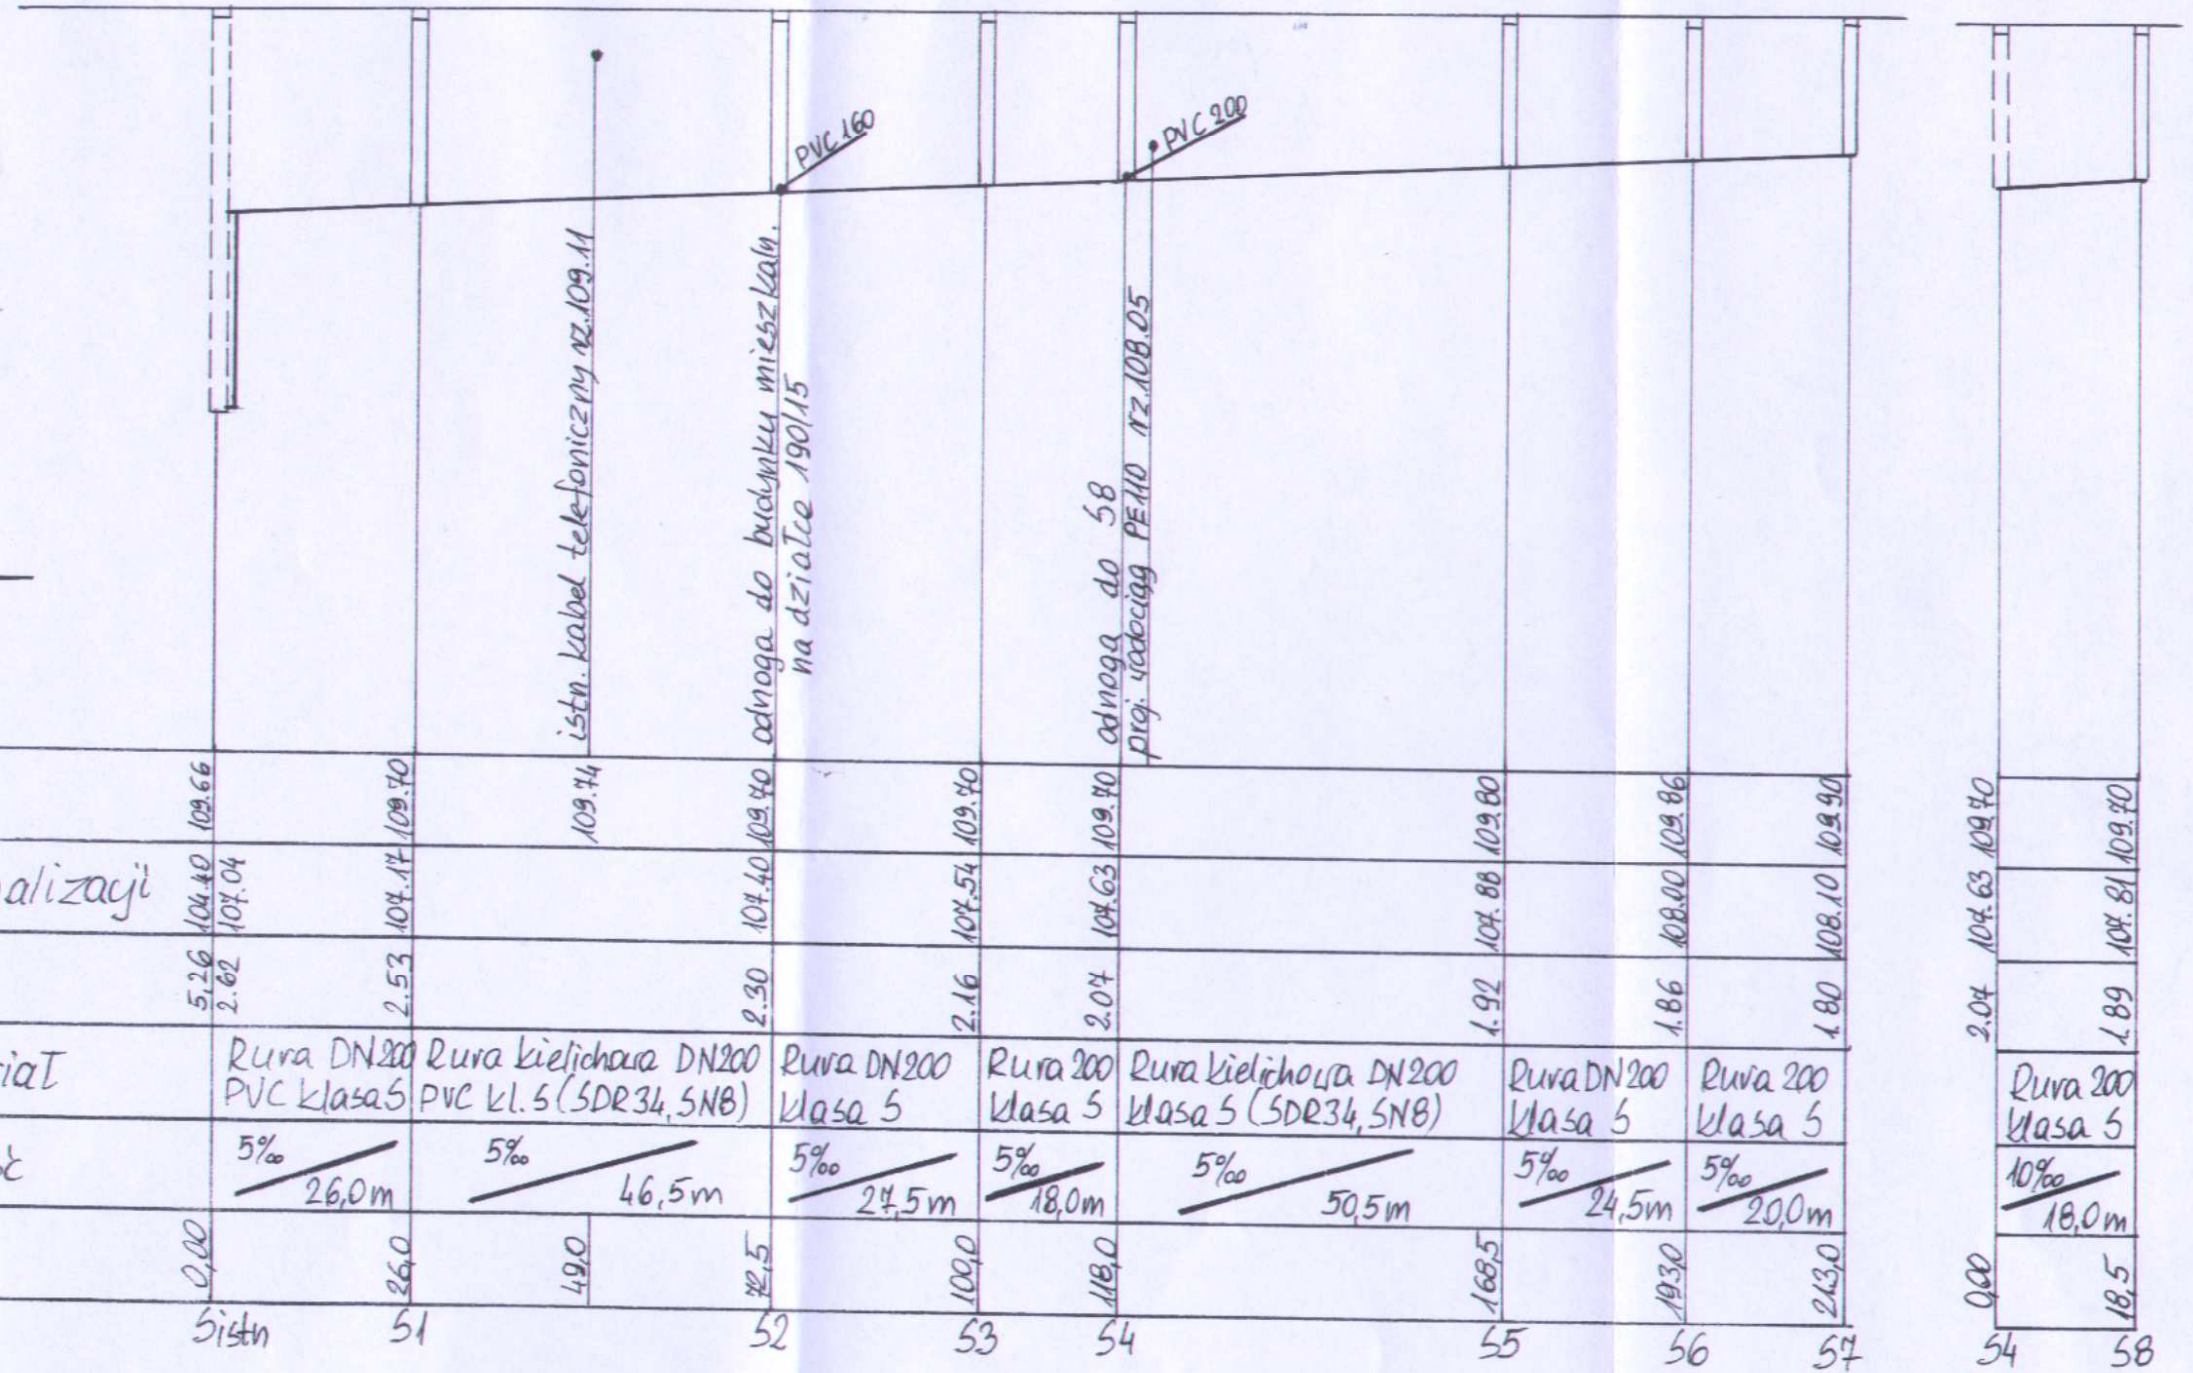 PVC 160
PVC 200
istn. kabel telefoniczny rz.109.11
odnoga do budynku mieszkaln.
na działce 190/15
odnoga do S8
proj. wodociąg PE110 rz.108.05
109.66 109.70 109.74 109.70 109.70 109.70 109.80 109.86 109.90 109.70 109.70
alizacji 104.40 107.04 107.17 107.40 107.54 107.63 107.88 108.00 108.10 107.63 107.81
5.26 2.62 2.53 2.30 2.16 2.07 1.92 1.86 1.80 2.07 1.89
iał
Rura DN200
PVC klasa S
Rura kielichowa DN200
PVC kl. S (SDR34, SN8)
Rura DN200
klasa S
Rura 200
klasa S
Rura kielichowa DN200
klasa S (SDR34, SN8)
Rura DN200
klasa S
Rura 200
klasa S
Rura 200
klasa S
ść
5‰ 26,0m
5‰ 46,5m
5‰ 27,5m
5‰ 18,0m
5‰ 50,5m
5‰ 24,5m
5‰ 20,0m
10‰ 18,0m
0,00 26,0 49,0 72,5 100,0 118,0 168,5 193,0 213,0 0,00 18,5
Sistn S1 S2 S3 S4 S5 S6 S7 S4 S8